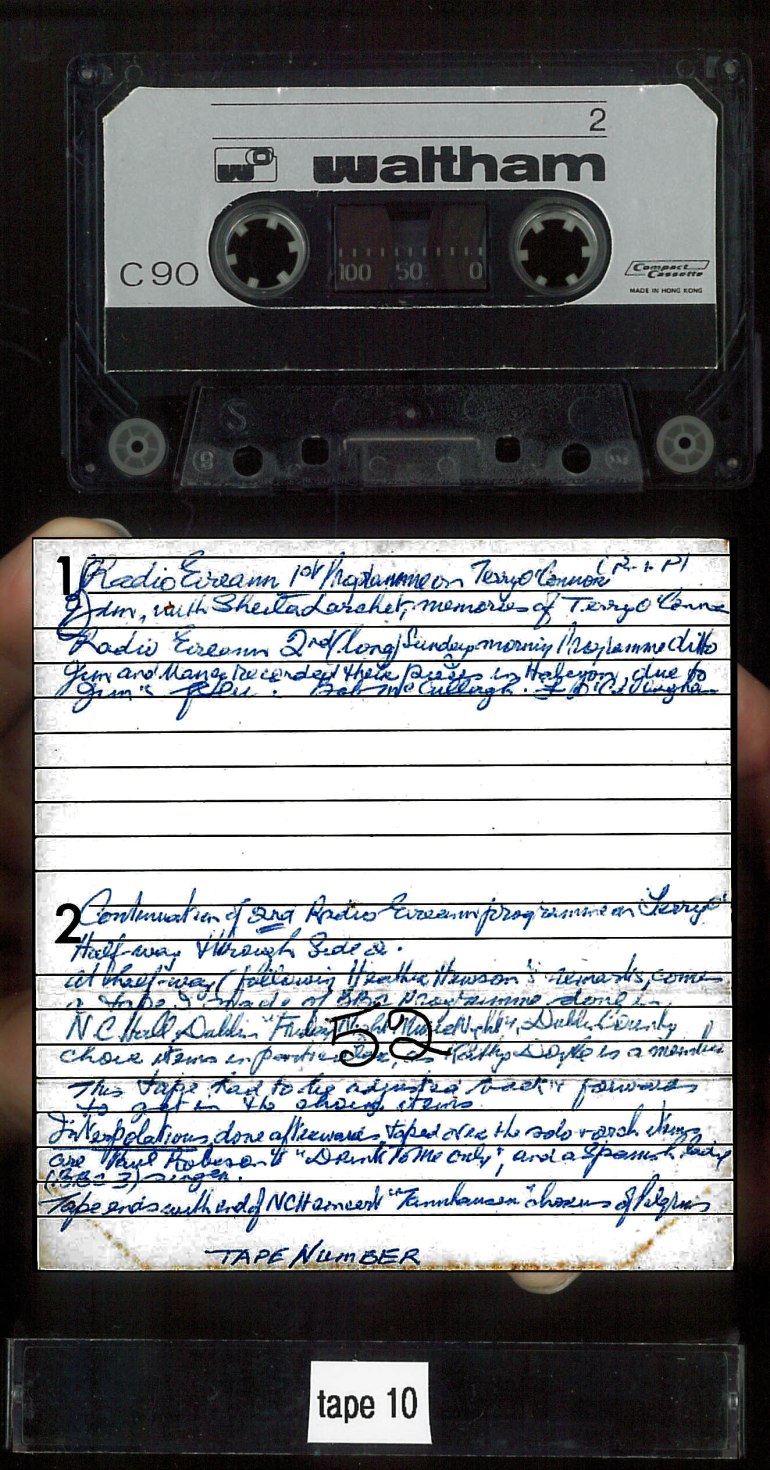 2
waltham
C90
100 50 0
Compact Cassette
MADE IN HONG KONG
1 Radio Eireann 1st Programme on Terry O'Connor
Jim, with Sheila Larchet, memories of Terry O'Conno
Radio Eireann 2nd (long) Sunday morning Programme ditto
Jim and Nancy recorded their pieces in Halcyon, due to
Jim's Bob McCullagh.
2 Continuation of 2nd Radio Eireann programme on Terry O'
Half-way through Side 2.
at half-way (following Heather Hewson's remarks, comes
a tape I made of BBC Programme done in
N C Hall Dublin "Friday Night Music Night", Dublin County
choir items in particular, as Kathy Doyle is a member
52
This tape had to be adjusted back & forwards
to get in the choir items
Interpolations done afterwards, taped over the solo & orch items
are Paul Robeson's "Drink to me only", and a Spanish lady
(BBC 3) singer.
Tape ends with end of NCH concert "Tannhauser" chorus of Pilgrims
TAPE NUMBER
tape 10